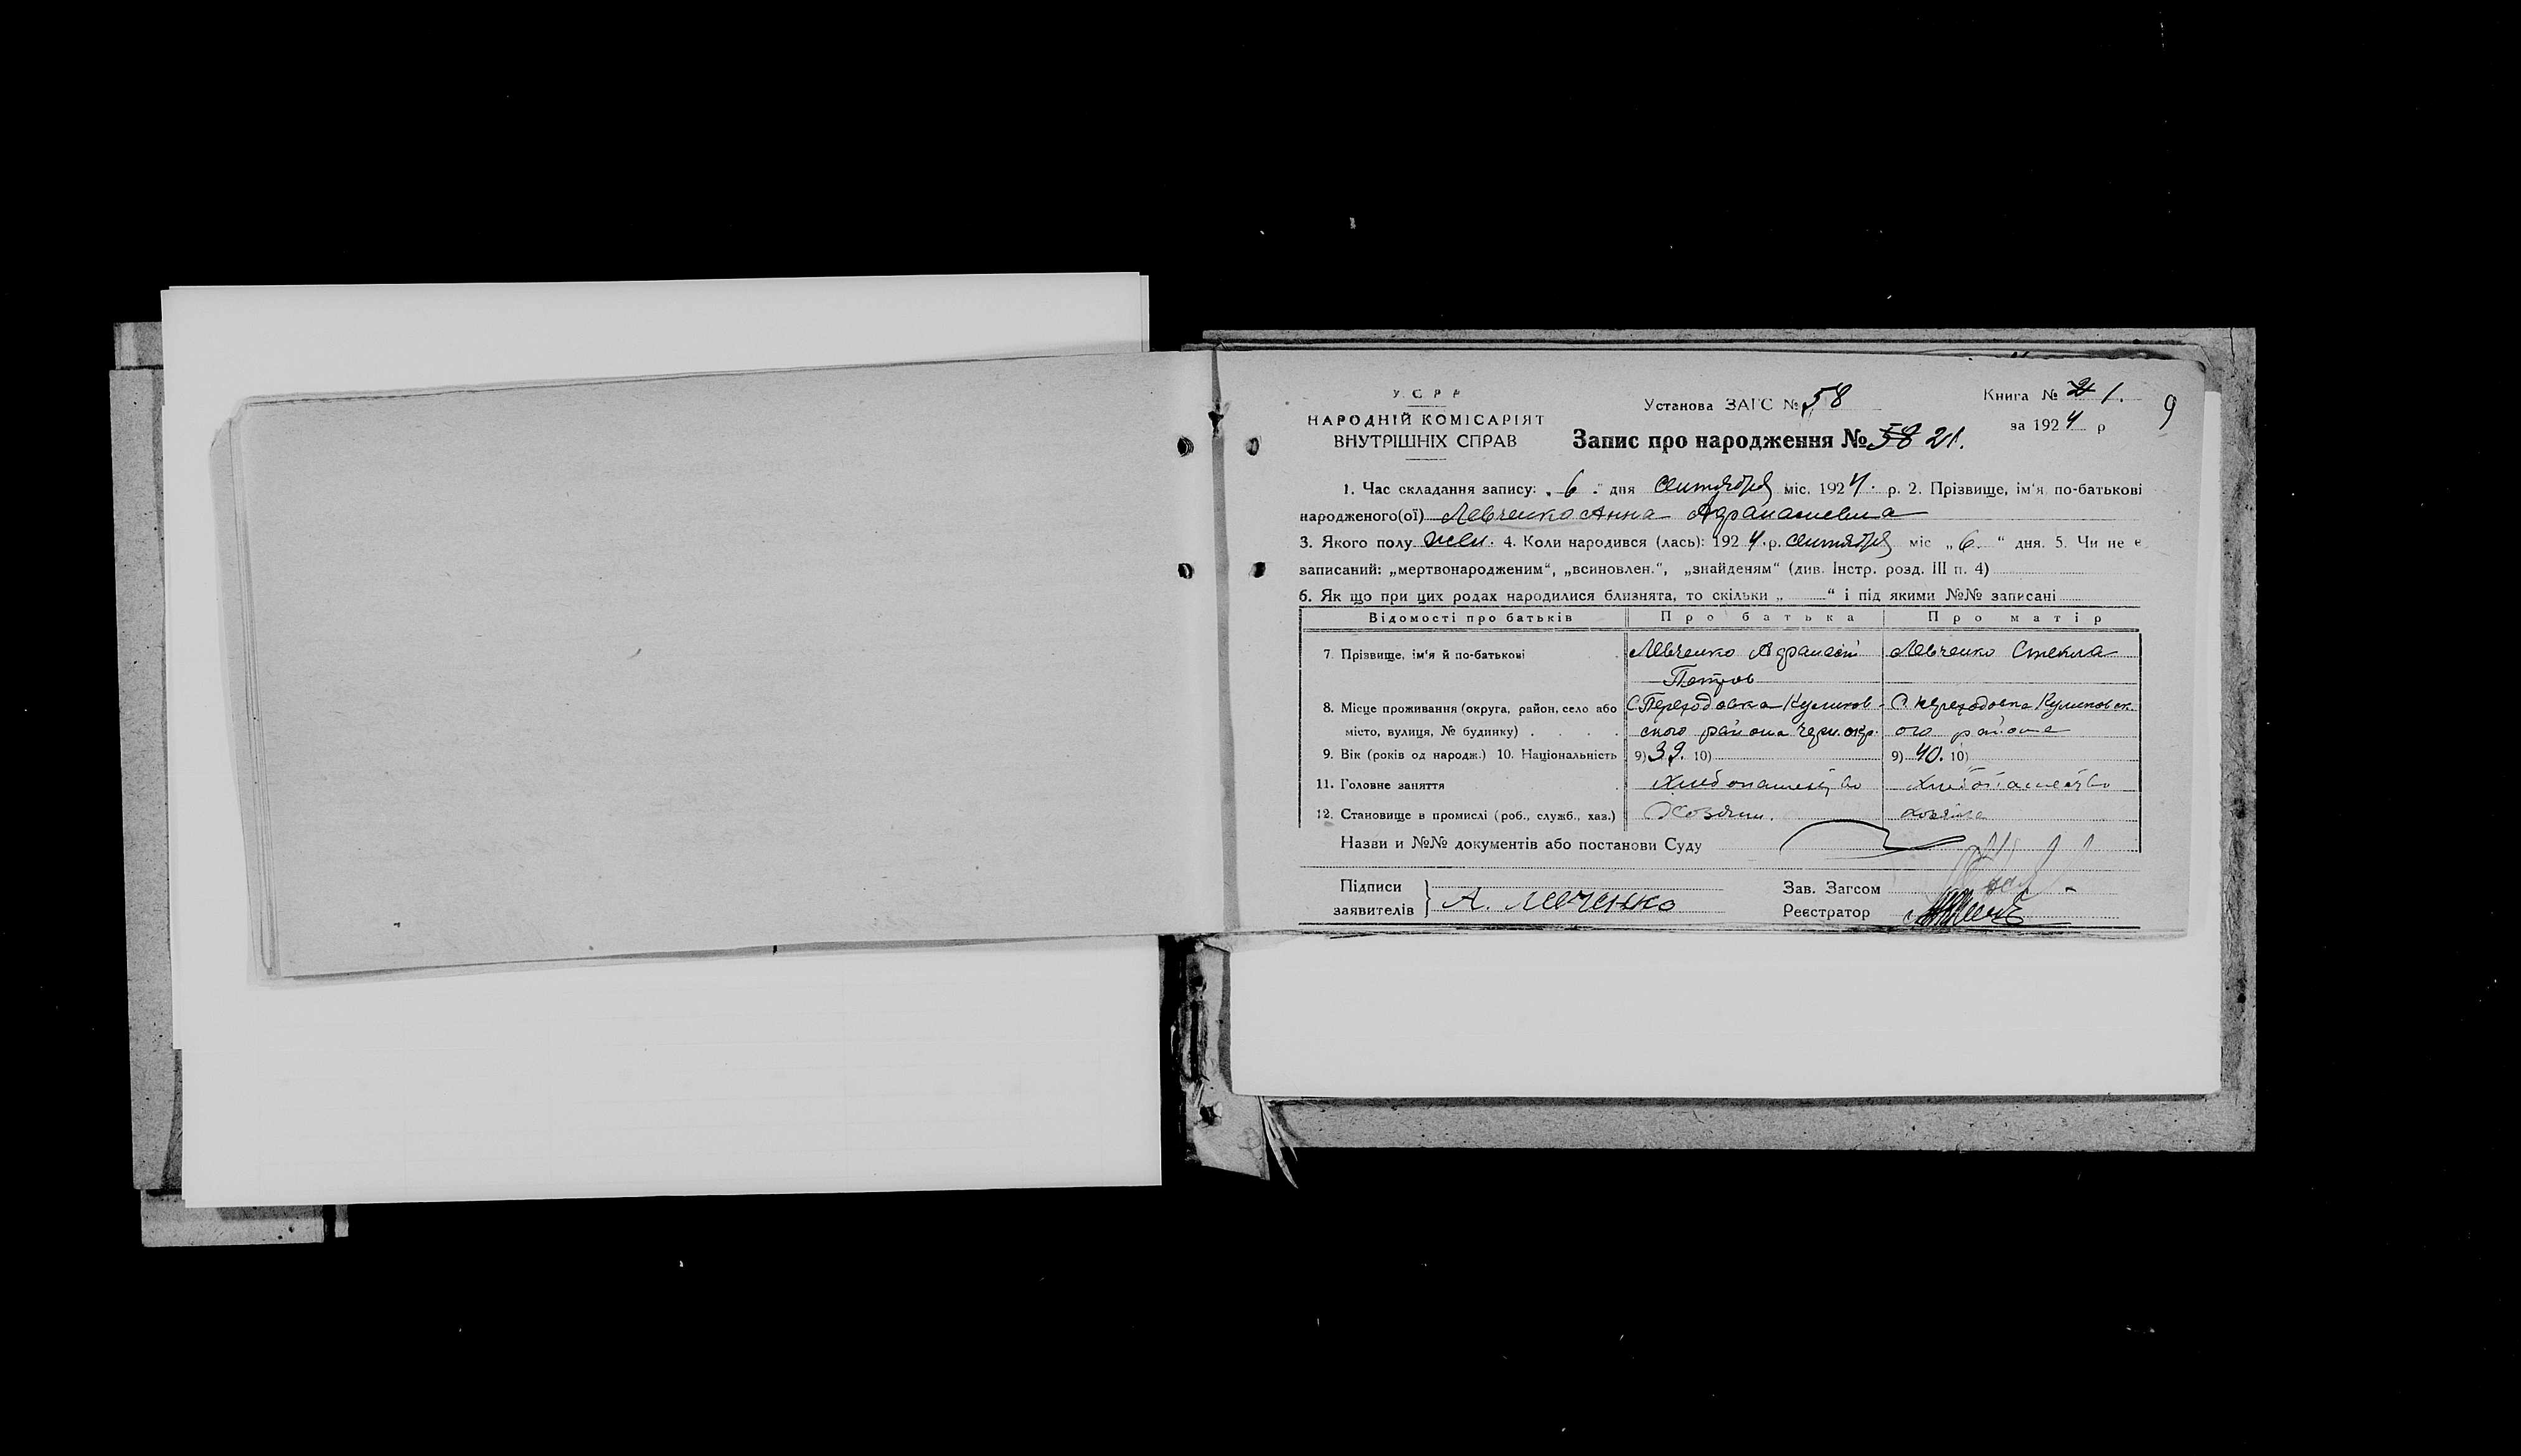 У. С. Р. Р.
НАРОДНІЙ КОМІСАРІЯТ
ВНУТРІШНІХ СПРАВ
Установа ЗАГС № 58
Книга № 1.
за 1924 р
9
Запис про народження № 58 21.
1. Час складання запису: „6.“ дня Сентября міс. 1924. р. 2. Прізвище, ім'я, по-батькові
народженого(ої) Левченко Анна Афанасиевна
3. Якого полу жен. 4. Коли народився (лась): 1924.р. Сентября міс „6.“ дня. 5. Чи не є
записаний: „мертвонародженим“, „всиновлен.“, „знайденям“ (див. Інстр. розд. III п. 4)
6. Як що при цих родах народилися близнята, то скільки „ “ і під якими №№ записані
Відомості про батьків Про батька Про матір
7. Прізвище, ім'я й по-батькові Левченко Афанасий Левченко Стекла
Петров
8. Місце проживання (округа, район, село або С. Переходовка Куликов- С. Переходовка Куликовск.
місто, вулиця, № будинку) . . . . ского района Черн. окр. ого района
9. Вік (років од народж.) 10. Національність 9) 39. 10) 9) 40. 10)
11. Головне заняття Хлебопашество Хлебопашество
12. Становище в промислі (роб., служб., хаз.) Хозяин. хозяйка
Назви и №№ документів або постанови Суду
Підписи
заявителів А. Левченко
Зав. Загсом
Реєстратор